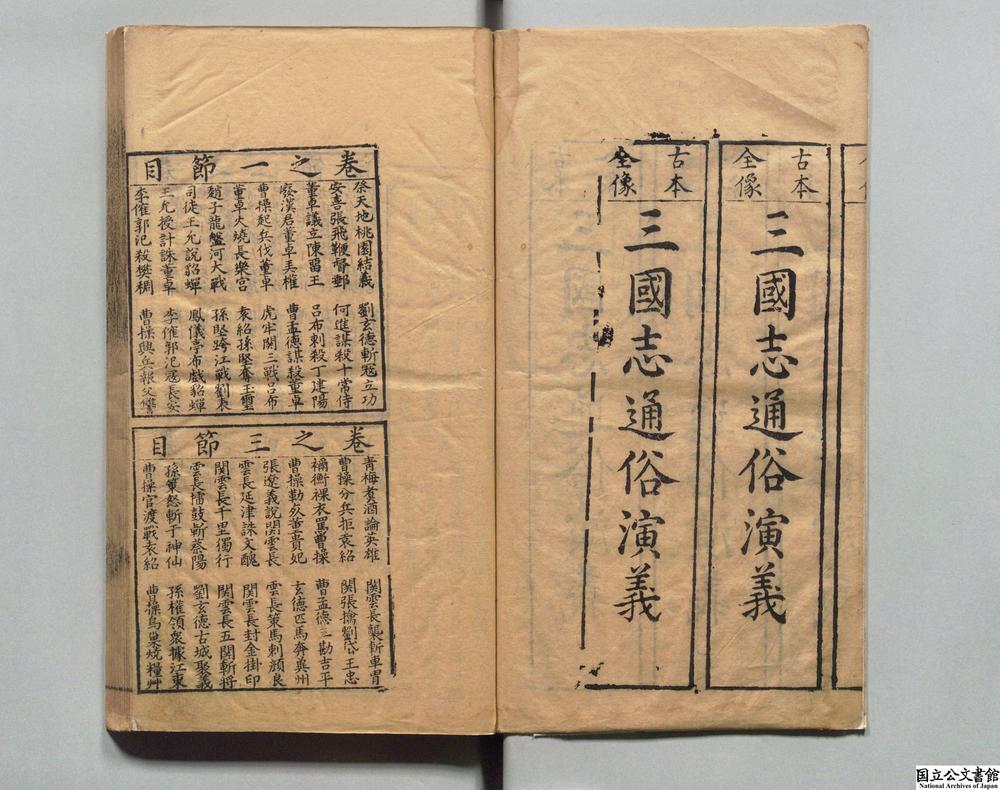 古本
全像
三國志通俗演義
古本
全像
三國志通俗演義
卷之一節目
祭天地桃園結義　劉玄德斬寇立功
安喜張飛鞭督郵　何進謀殺十常侍
董卓議立陳留王　呂布刺殺丁建陽
廢漢君董卓弄權　曹孟德謀殺董卓
曹操起兵伐董卓　虎牢関三戰呂布
董卓火燒長樂宮　袁紹孫堅奪玉璽
趙子龍盤河大戰　孫堅跨江戰劉表
司徒王允說貂蟬　鳳儀亭布戲貂蟬
王允授計誅董卓　李傕郭汜寇長安
李傕郭汜殺樊稠　曹操興兵報父讐
卷之三節目
青梅煮酒論英雄　関雲長襲斬車冑
曹操分兵拒袁紹　関張擒劉岱王忠
禰衡裸衣罵曹操　曹孟德三勘吉平
曹操勒死董貴妃　玄德匹馬奔兾州
張遼義說関雲長　雲長策馬刺顔良
雲長延津誅文醜　関雲長封金掛印
関雲長千里獨行　関雲長五関斬将
雲長擂鼓斬蔡陽　劉玄德古城聚義
孫策怒斬于神仙　孫權領衆據江東
曹操官渡戰袁紹　曹操烏巢燒糧艸
国立公文書館
National Archives of Japan